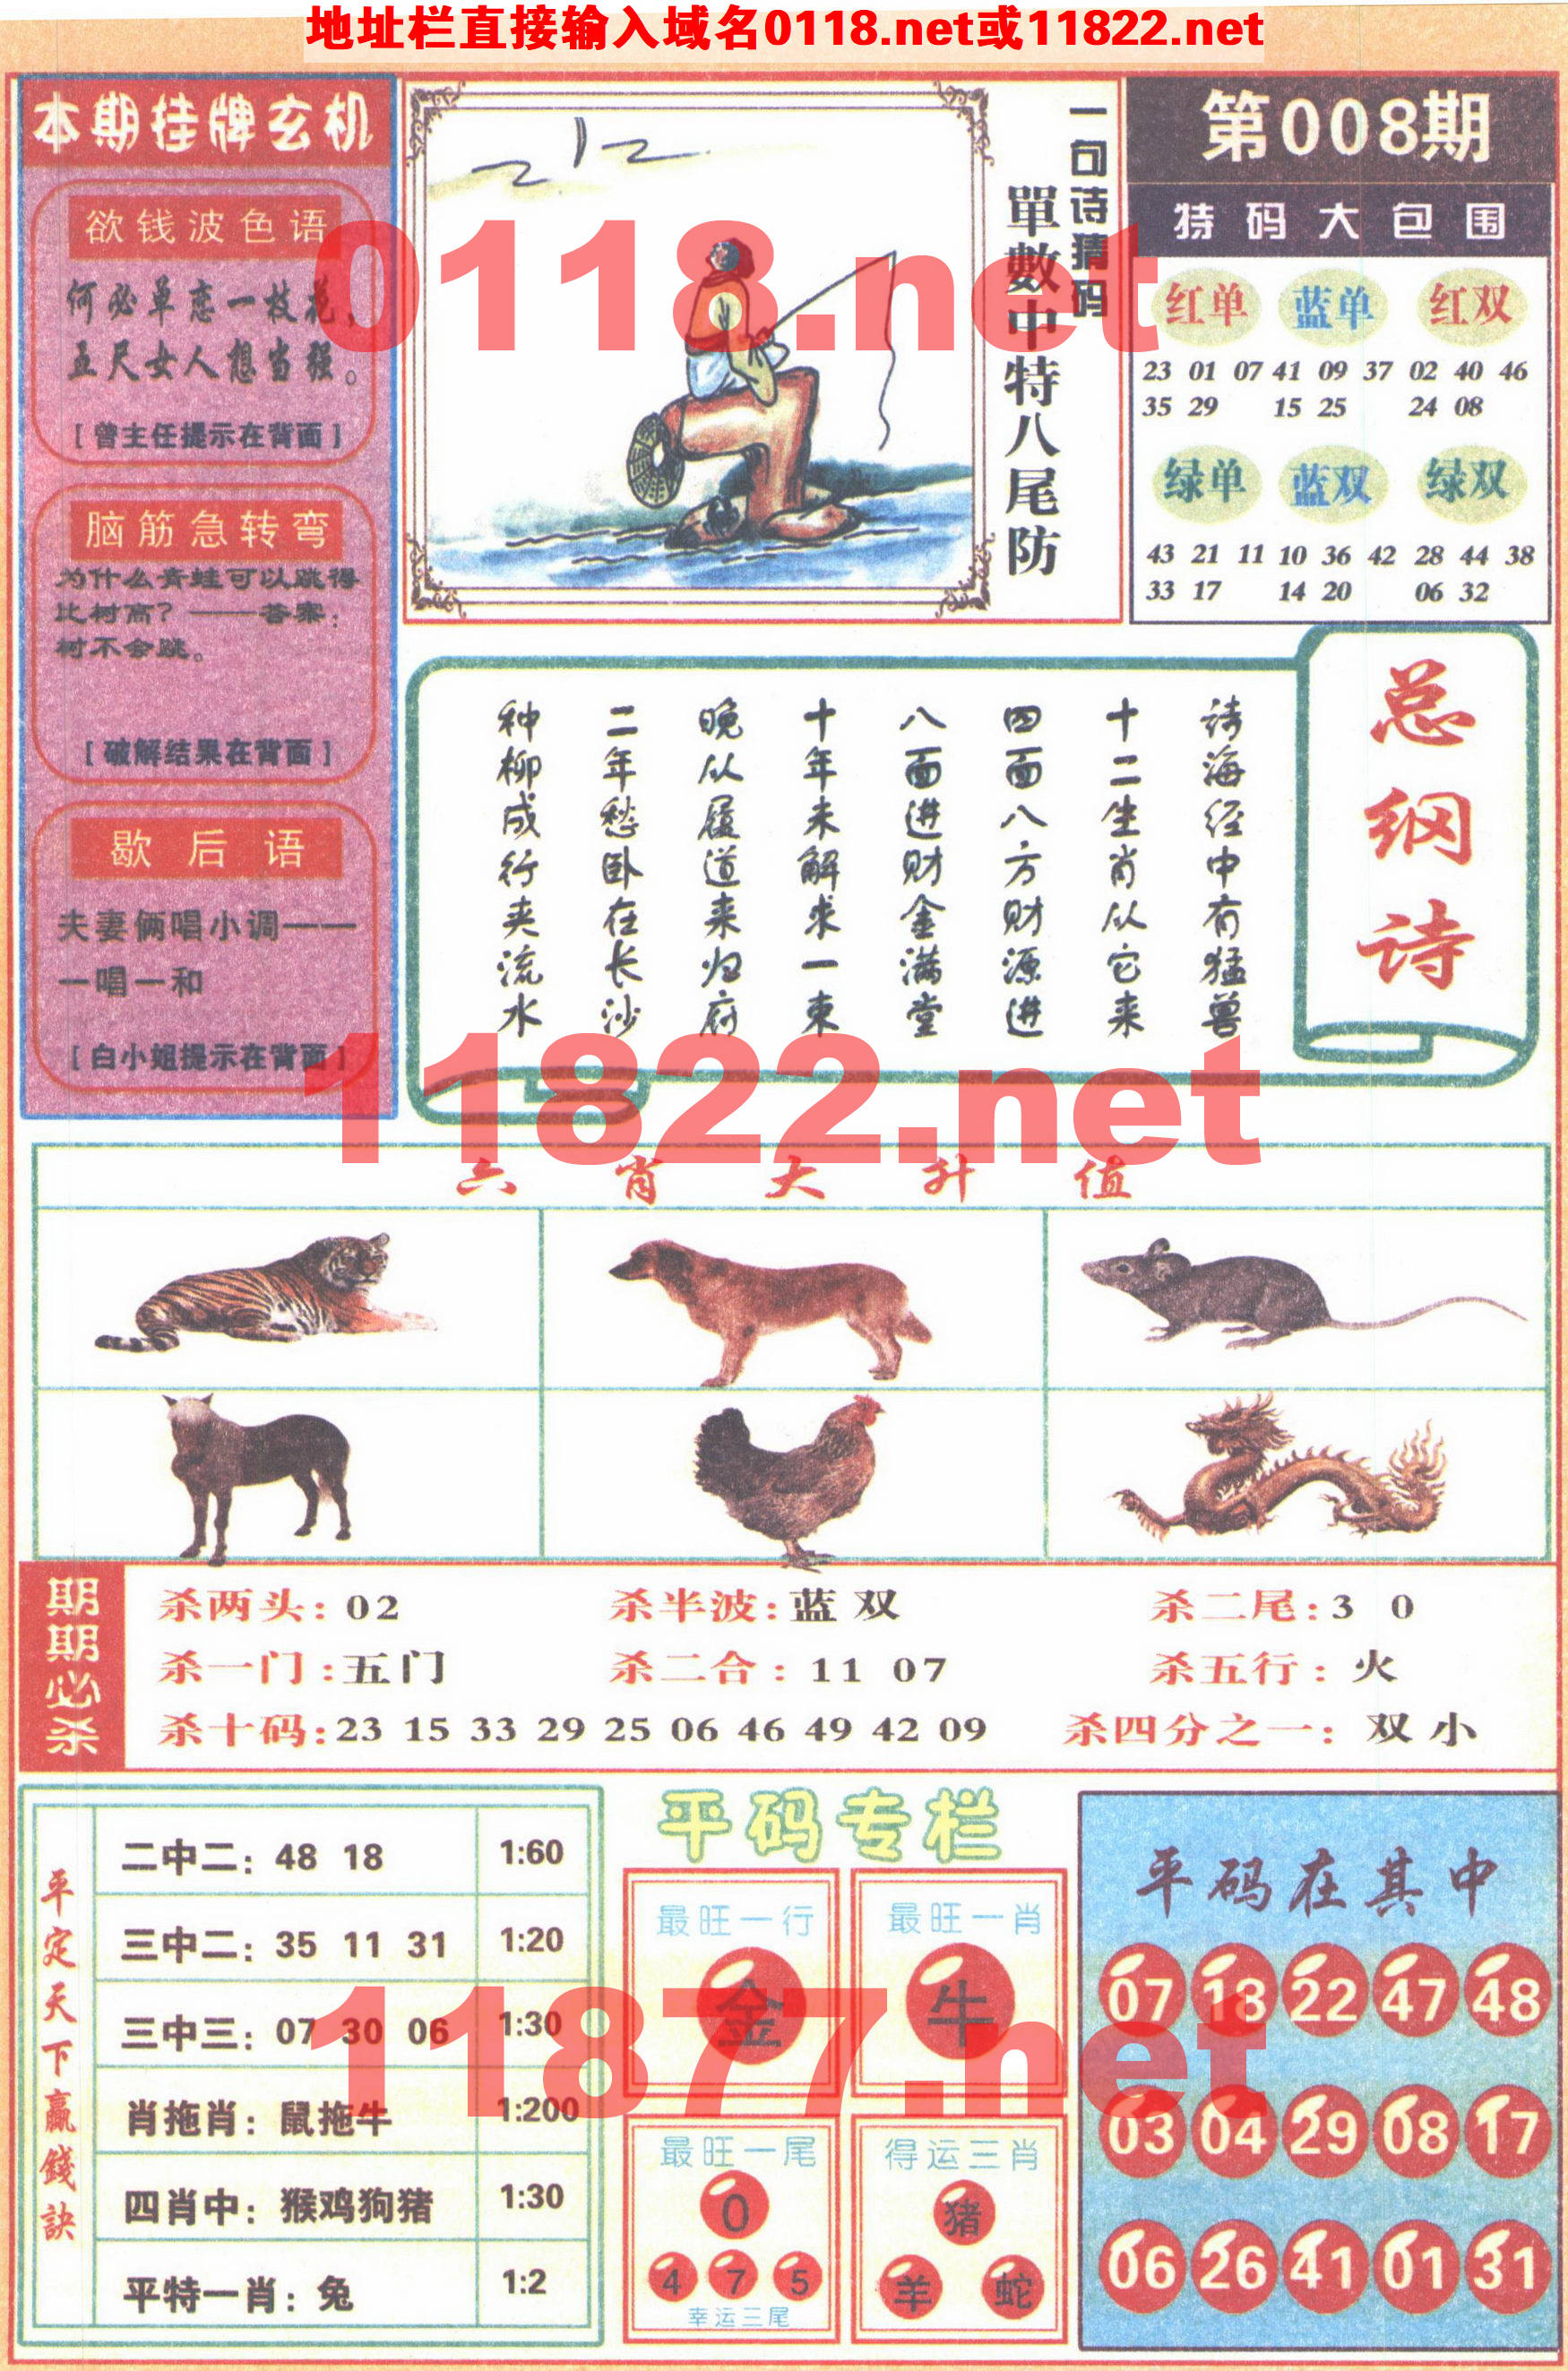 地址栏直接输入域名0118.net或11822.net
本期挂牌玄机
欲钱波色语
何必单恋一枝花，
五尺女人想当强。
[曾主任提示在背面]
脑筋急转弯
为什么青蛙可以跳得
比树高？——答案：
树不会跳。
[破解结果在背面]
歇后语
夫妻俩唱小调——
一唱一和
[白小姐提示在背面]
一句诗猜码
單數中特八尾防
第008期
特码大包围
红单 蓝单 红双
23 01 07 41 09 37 02 40 46
35 29 15 25 24 08
绿单 蓝双 绿双
43 21 11 10 36 42 28 44 38
33 17 14 20 06 32
0118.net
总纲诗
诗海经中有猛兽
十二生肖从它来
四面八方财源进
八面进财金满堂
十年未解求一束
晚从履道来归府
二年愁卧在长沙
种柳成行夹流水
11822.net
六肖大升值
期期必杀
杀两头：02 杀半波：蓝双 杀二尾：3 0
杀一门：五门 杀二合：11 07 杀五行：火
杀十码：23 15 33 29 25 06 46 49 42 09 杀四分之一：双小
平定天下赢錢訣
二中二：48 18 1:60
三中二：35 11 31 1:20
三中三：07 30 06 1:30
肖拖肖：鼠拖牛 1:200
四肖中：猴鸡狗猪 1:30
平特一肖：兔 1:2
平码专栏
最旺一行
金
最旺一肖
牛
最旺一尾
0
4 7 5
幸运三尾
得运三肖
猪
羊 蛇
平码在其中
07 13 22 47 48
03 04 29 08 17
06 26 41 01 31
11877.net